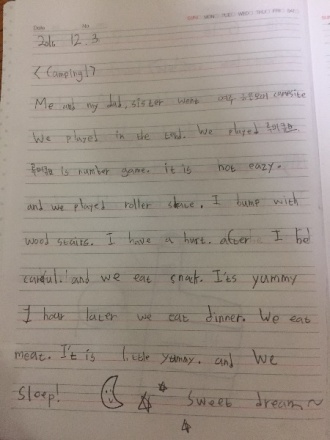 Date No
2016 12 3
< Camping! >
Me and my dad, sister went campsite
We played in the tent. We played
is number game. it is not eazy.
and we played roller skave. I bump with
wood stairs. I have a hurt. after I be
careful! and we eat snack. It's yummy
1 hour later we eat dinner. We eat
meat. It is little yummy. and We
Sleep! Sweet dream~